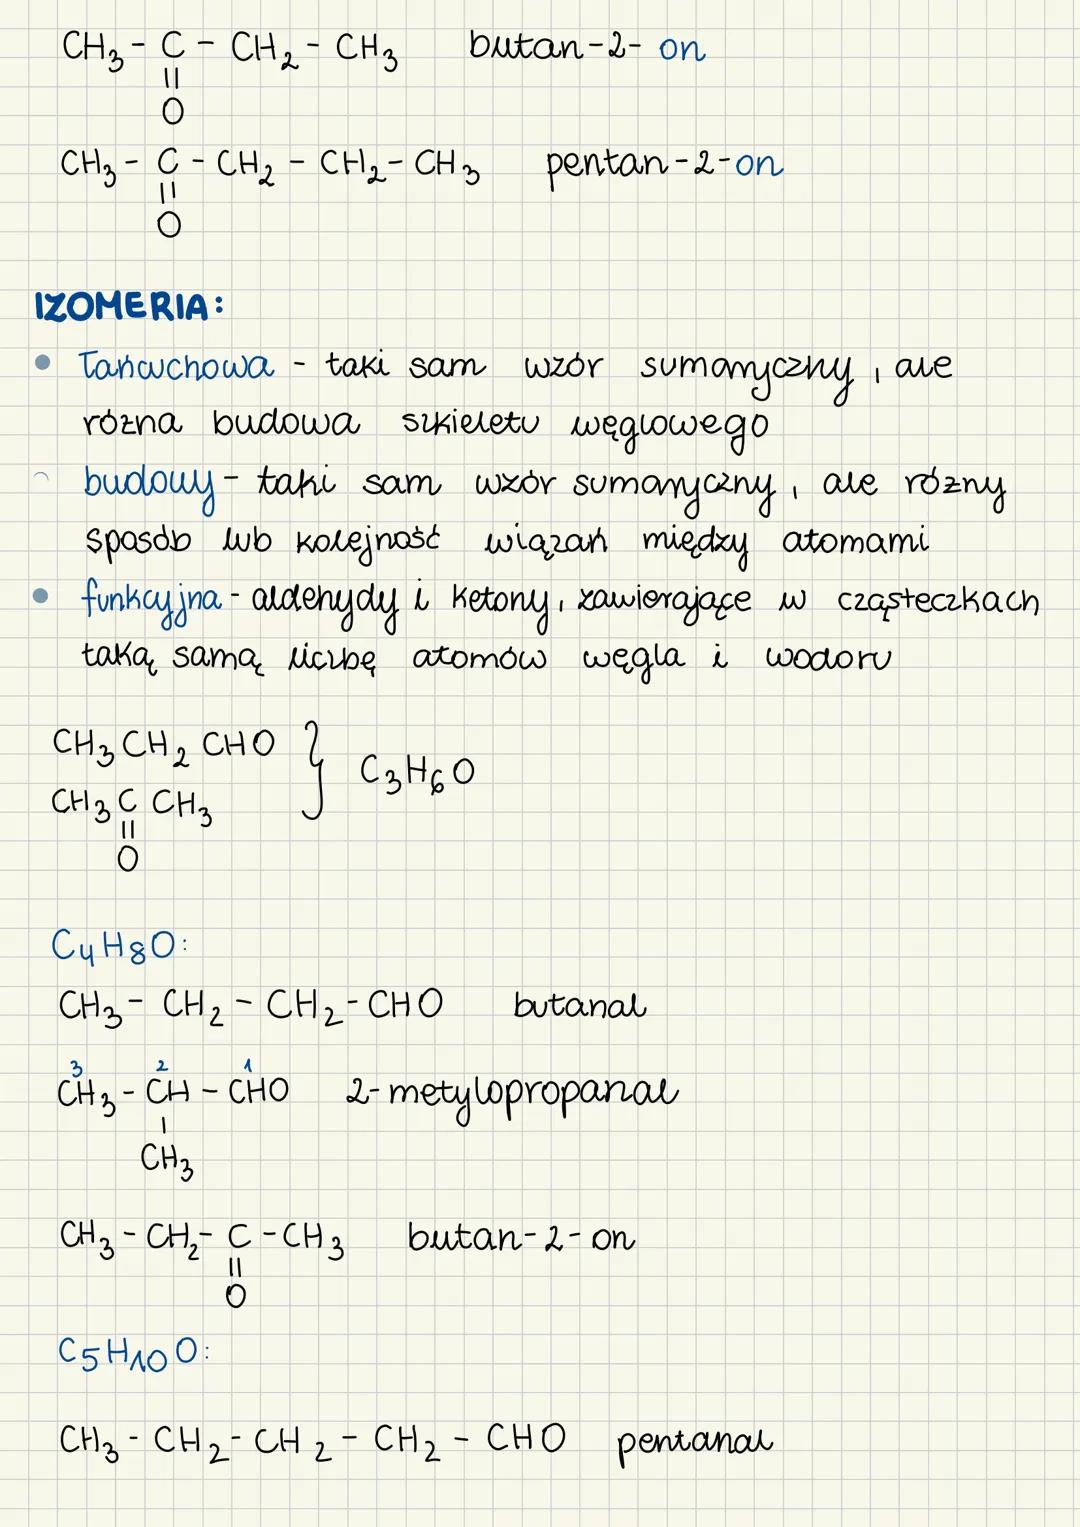 CH₃ - C - CH₂ - CH₃ butan-2-on
||
O
CH₃ - C - CH₂ - CH₂ - CH₃ pentan-2-on
||
O
IZOMERIA:
• łańcuchowa - taki sam wzór sumaryczny, ale
różna budowa szkieletu węglowego
budowy - taki sam wzór sumaryczny, ale różny
sposób lub kolejność wiązań między atomami
• funkcyjna - aldehydy i ketony, zawierające w cząsteczkach
taką samą liczbę atomów węgla i wodoru
CH₃CH₂CHO } C₃H₆O
CH₃CCH₃
||
O
C₄H₈O:
CH₃ - CH₂ - CH₂ - CHO butanal
3 2 1
CH₃ - CH - CHO 2-metylopropanal
|
CH₃
CH₃ - CH₂ - C - CH₃ butan-2-on
||
O
C₅H₁₀O:
CH₃ - CH₂ - CH₂ - CH₂ - CHO pentanal